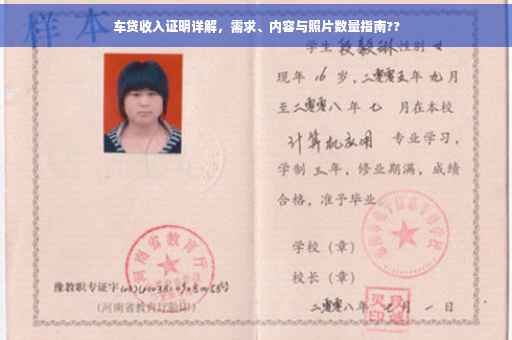 车贷收入证明详解，需求、内容与照片数量指南??
样本
学生段毅琳性别女
现年16岁，二零零五年九月
至二零零八年七月在本校
计算机应用 专业学习，
学制三年，修业期满，成绩
合格，准予毕业。
学校（章）
校长（章）
河南省教育厅
豫教职专证字
（河南省教育厅验印）
二零零八年 月一日